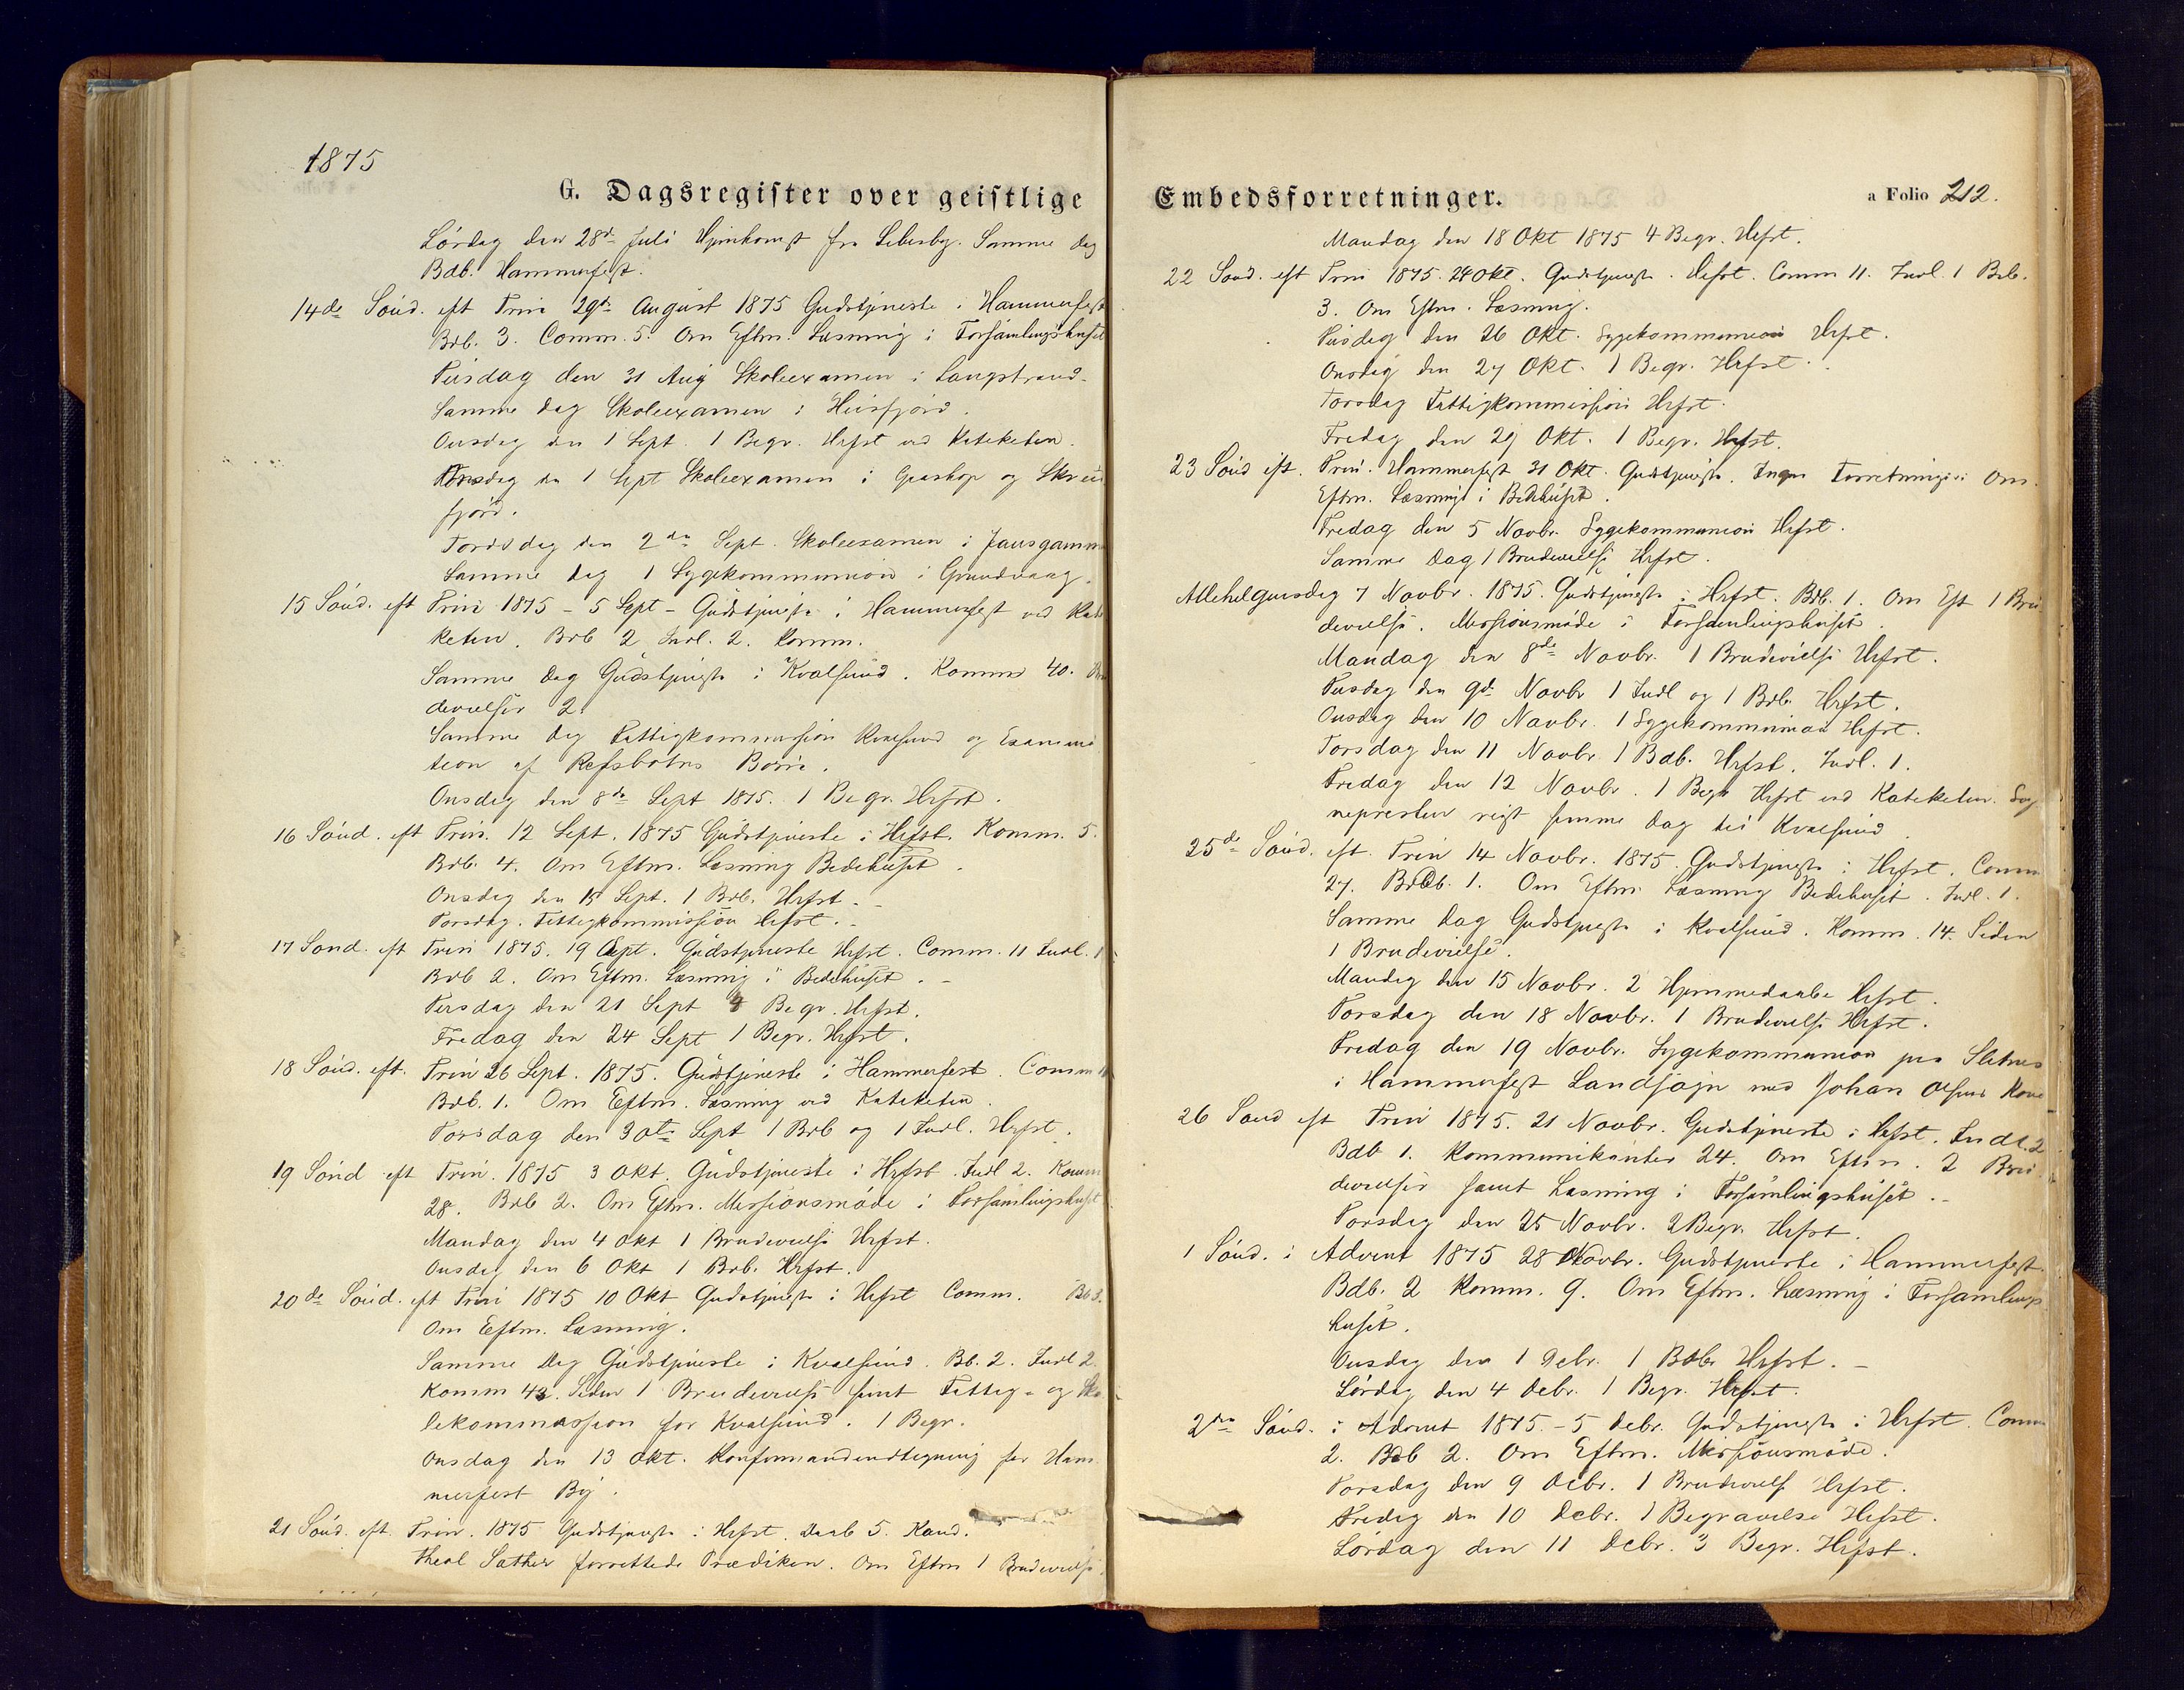 1875
G. Dagsregister over geistlige
Lördag den 28de Juli Hjemkomst fra Lebesby. Samme dag
Bdb. Hammerfest.
14de Sönd. eft Trin 29de August 1875 Gudstjeneste i Hammerfest
Brb. 3. Comm. 5. Om Eftm. Læsning i Forsamlingshuset
Tirsdag den 31 Aug Skoleexamen i Langstrand.
Samme dag Skoleexamen i
Onsdag den 1 Sept. 1 Begr. Hfst ved Kateketen.
Onsdag den 1 Sept Skoleexamen i og Skrei
fjord.
Torsdag den 2den Sept. Skoleexamen i Jansgamm
Samme dag 1 Sygekommunion i Grundvaag.
15 Sönd. eft Trin 1875 - 5 Sept - Gudstjenste i Hammerfest ved Kate
keten. Brb 2 Indl. 2. Komm.
Samme Dag Gudstjenste i Kvalsund. Komm 40. Bru
devielser 2.
Samme dag Fattigkommission Kvalsund og Examina
tion af Refsbotns Börn.
Onsdag den 8de Sept 1875. 1 Begr. Hfst.
16 Sönd. eft Trin. 12 Sept. 1875 Gudstjeneste i Hfst. Komm. 5.
Brb. 4. Om Eftm. Læsning Bedehuset.
Onsdag den 15 Sept. 1 Brb. Hfst.
Torsdag. Fattigkommission Hfst.
17 Sönd. eft Trin 1875. 19 Sept. Gudstjeneste Hfst. Comm. 11 Indl. 1
Brb 2. Om Eftm. Læsning i Bedehuset.
Tirsdag den 21 Sept 4 Begr. Hfst.
Fredag den 24 Sept 1 Begr. Hfst.
18 Sönd. eft. Trin 26 Sept. 1875. Gudstjeneste i Hammerfest. Comm
Bdb. 1. Om Eftm. Læsning ved Kateketen.
Torsdag den 30te Sept 1 Brb og 1 Indl. Hfst.
19 Sönd eft Trin. 1875 3 Okt. Gudstjeneste i Hfst. Indl 2. Komm
28. Brb 2. Om Eftm. Missionsmöde i Forsamlingshuset
Mandag den 4 Okt 1 Brudevielse Hfst.
Onsdag den 6 Okt 1 Brb. Hfst.
20de Sönd. eft Trin 1875 10 Okt Gudstjenste i Hfst Comm. Bb 3.
Om Eftm. Læsning.
Samme Dag Gudstjeneste i Kvalsund. Bb. 2. Indl 2.
Komm 43. Siden 1 Brudevielse samt Fattig- og Sko
lekommission for Kvalsund. 1 Begr.
Onsdag den 13 Okt. Konfirmandindtegning for Ham
merfest By.
21 Sönd. eft. Trin. 1875 Gudstjenste i Hfst. Daab 5. Kand.
theol Sæther forrettede Prædiken. Om Eftm 1 Brudevielse.
Embedsforretninger.
a Folio 212.
Mandag den 18 Okt 1875 4 Begr. Hfst.
22 Sönd. eft Trin 1875. 24 Okt. Gudstjenste. Hfst. Comm 11. Indl. 1 Brb.
3. Om Eftm. Læsning.
Tirsdag den 26 Okt. Sygekommunion Hfst.
Onsdag den 27 Okt. 1 Begr. Hfst.
Torsdag Fattigkommission Hfst.
Fredag den 29 Okt. 1 Begr. Hfst.
23 Sönd eft. Trin. Hammerfest 31 Okt. Gudstjenste. Ingen Forretninger. Om
Eftm. Læsning i Bedehuset.
Fredag den 5 Novbr. Sygekommunion Hfst.
Samme Dag 1 Brudevielse Hfst.
Allehelgensdag 7 Novbr. 1875. Gudstjenste i Hfst. Brb. 1. Om Eft 1 Bru
devielse. Missionsmöde i Forsamlingshuset.
Mandag den 8de Novbr. 1 Brudevielse Hfst.
Tirsdag den 9de Novbr 1 Indl og 1 Bdb. Hfst.
Onsdag den 10 Novbr. 1 Sygekommunion Hfst.
Torsdag den 11 Novbr. 1 Bdb. Hfst. Indl. 1.
Fredag den 12 Novbr. 1 Begr Hfst ved Kateketen. Sog
nepresten reist samme Dag til Kvalsund.
25de Sönd. eft. Trin 14 Novbr. 1875. Gudstjenste i Hfst. Comm
27. Brb. 1. Om Eftm. Læsning Bedehuset. Indl. 1.
Samme Dag Gudstjenste i Kvalsund. Komm. 14. Siden
1 Brudevielse.
Mandag den 15 Novbr. 2 Hjemmedaabe Hfst.
Torsdag den 18 Novbr. 1 Brudevielse Hfst.
Fredag den 19 Novbr. Sygekommunion paa Sletnes
i Hammerfest Landsogn med Johan Olsens Kone
26 Sönd eft Trin 1875. 21 Novbr. Gudstjeneste i Hfst. Indl. 2
Bdb 1. Kommunikanter 24. Om Eftm. 2 Bru
devielser samt Læsning i Forsamlingshuset.
Torsdag den 25 Novbr. 2 Begr. Hfst.
1 Sönd. i Advent 1875 28 Novbr. Gudstjeneste i Hammerfest
Bdb. 2 Komm. 9. Om Eftm. Læsning i Forsamlings
huset.
Onsdag den 1 Debr. 1 Bdb. Hfst.
Lördag den 4 Debr. 1 Begr. Hfst.
2den Sönd. i Advent 1875. - 5 Debr. Gudstjenste i Hfst. Comm
2. Bdb 2. Om Eftm. Missionsmöde.
Torsdag den 9 Debr. 1 Brudevielse Hfst.
Fredag den 10 Debr. 1 Begravelse Hfst.
Lördag den 11 Debr. 3 Begr. Hfst.